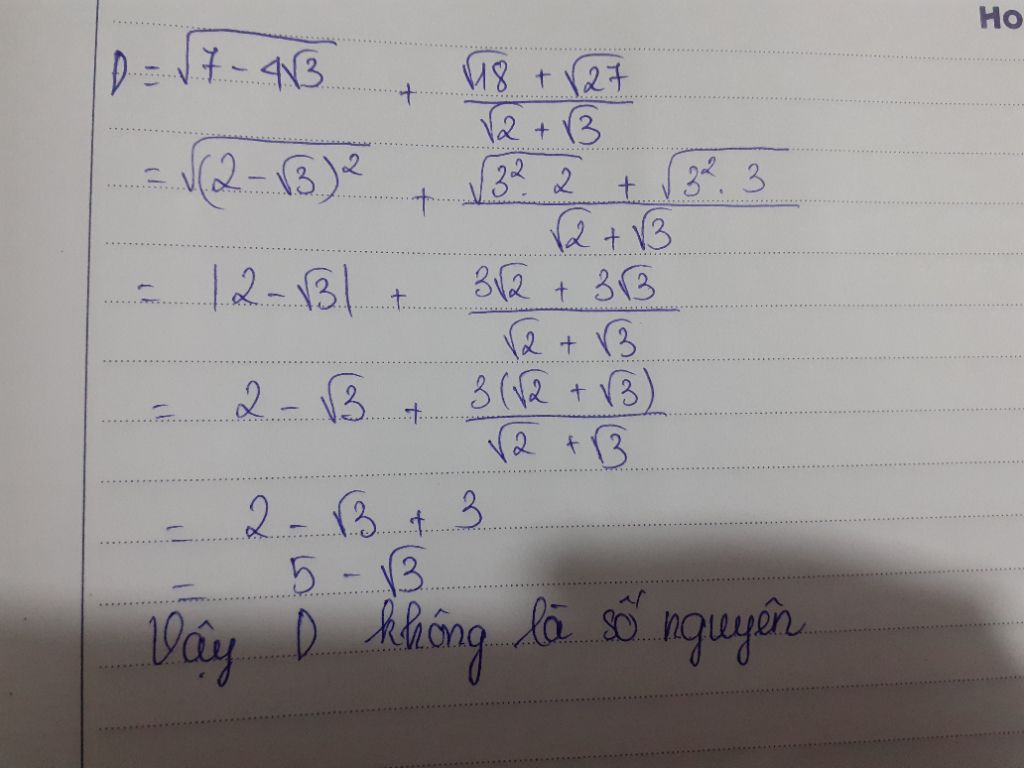 Ho
D = √(7 - 4√3) + (√18 + √27)/(√2 + √3)
= √((2 - √3)²) + (√(3². 2) + √(3². 3))/(√2 + √3)
= |2 - √3| + (3√2 + 3√3)/(√2 + √3)
= 2 - √3 + (3(√2 + √3))/(√2 + √3)
= 2 - √3 + 3
= 5 - √3
Vậy D không là số nguyên